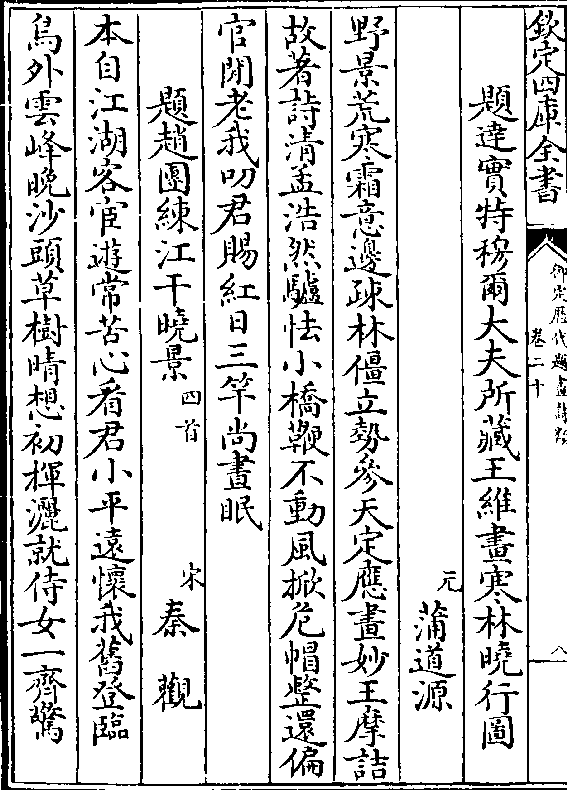 欽定四庫全書
御定歷代題畫詩類
卷二十
八
題達實特穆爾大夫所藏王維畫寒林曉行圖
元 蒲道源
野景荒寒霜意邊疎林僵立勢參天定應畫妙王摩詰
故著詩清孟浩然驢怯小橋鞭不動風掀危帽整還偏
官閒老我叨君賜紅日三竿尚晝眠
題趙團練江干曉景四首
宋 秦觀
本自江湖客宦遊常苦心看君小平遠懷我舊登臨
鳥外雲峰晚沙頭草樹晴想初揮灑就侍女一齊驚